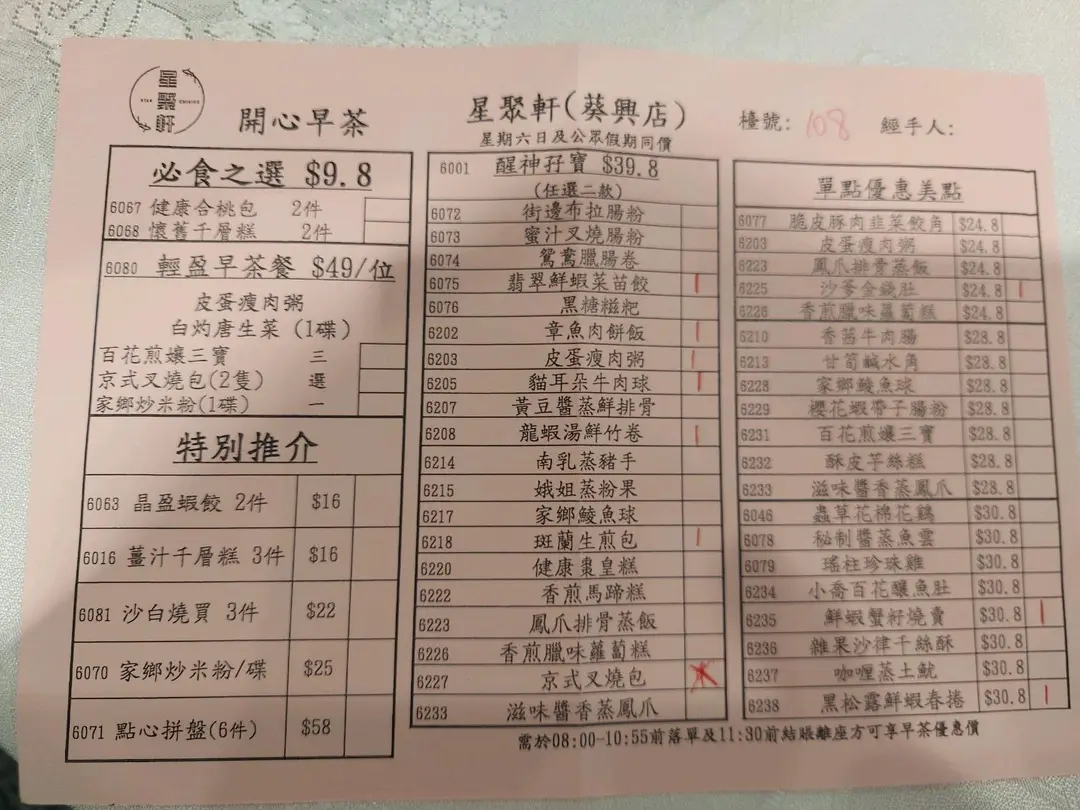 星聚軒
STAR CUISINE
開心早茶
星聚軒(葵興店)
星期六日及公眾假期同價
檯號: 108 經手人:
必食之選 $9.8
6067 健康合桃包 2件
6068 懷舊千層糕 2件
6080 輕盈早茶餐 $49/位
皮蛋瘦肉粥
白灼唐生菜 (1碟)
百花煎孃三寶 三
京式叉燒包(2隻) 選
家鄉炒米粉(1碟) 一
特別推介
6063 晶盈蝦餃 2件 $16
6016 薑汁千層糕 3件 $16
6081 沙白燒買 3件 $22
6070 家鄉炒米粉/碟 $25
6071 點心拼盤(6件) $58
6001 醒神孖寶 $39.8
(任選二款)
6072 街邊布拉腸粉
6073 蜜汁叉燒腸粉
6074 鴛鴦臘腸卷
6075 翡翠鮮蝦菜苗餃
6076 黑糖糍粑
6202 章魚肉餅飯
6203 皮蛋瘦肉粥
6205 貓耳朵牛肉球
6207 黃豆醬蒸鮮排骨
6208 龍蝦湯鮮竹卷
6214 南乳蒸豬手
6215 娥姐蒸粉果
6217 家鄉鯪魚球
6218 斑蘭生煎包
6220 健康棗皇糕
6222 香煎馬蹄糕
6223 鳳爪排骨蒸飯
6226 香煎臘味蘿蔔糕
6227 京式叉燒包
6233 滋味醬香蒸鳳爪
單點優惠美點
6077 脆皮豚肉韭菜餃角 $24.8
6203 皮蛋瘦肉粥 $24.8
6223 鳳爪排骨蒸飯 $24.8
6225 沙爹金錢肚 $24.8
6226 香煎臘味蘿蔔糕 $24.8
6210 香茜牛肉腸 $28.8
6213 甘筍鹹水角 $28.8
6228 家鄉鯪魚球 $28.8
6229 櫻花蝦帶子腸粉 $28.8
6231 百花煎孃三寶 $28.8
6232 酥皮芋絲糕 $28.8
6233 滋味醬香蒸鳳爪 $28.8
6046 蟲草花棉花鷄 $30.8
6078 秘制醬蒸魚雲 $30.8
6079 瑤柱珍珠雞 $30.8
6234 小喬百花釀魚肚 $30.8
6235 鮮蝦蟹籽燒賣 $30.8
6236 雜果沙律千絲酥 $30.8
6237 咖喱蒸土魷 $30.8
6238 黑松露鮮蝦春捲 $30.8
需於08:00-10:55前落單及11:30前結賬離座方可享早茶優惠價